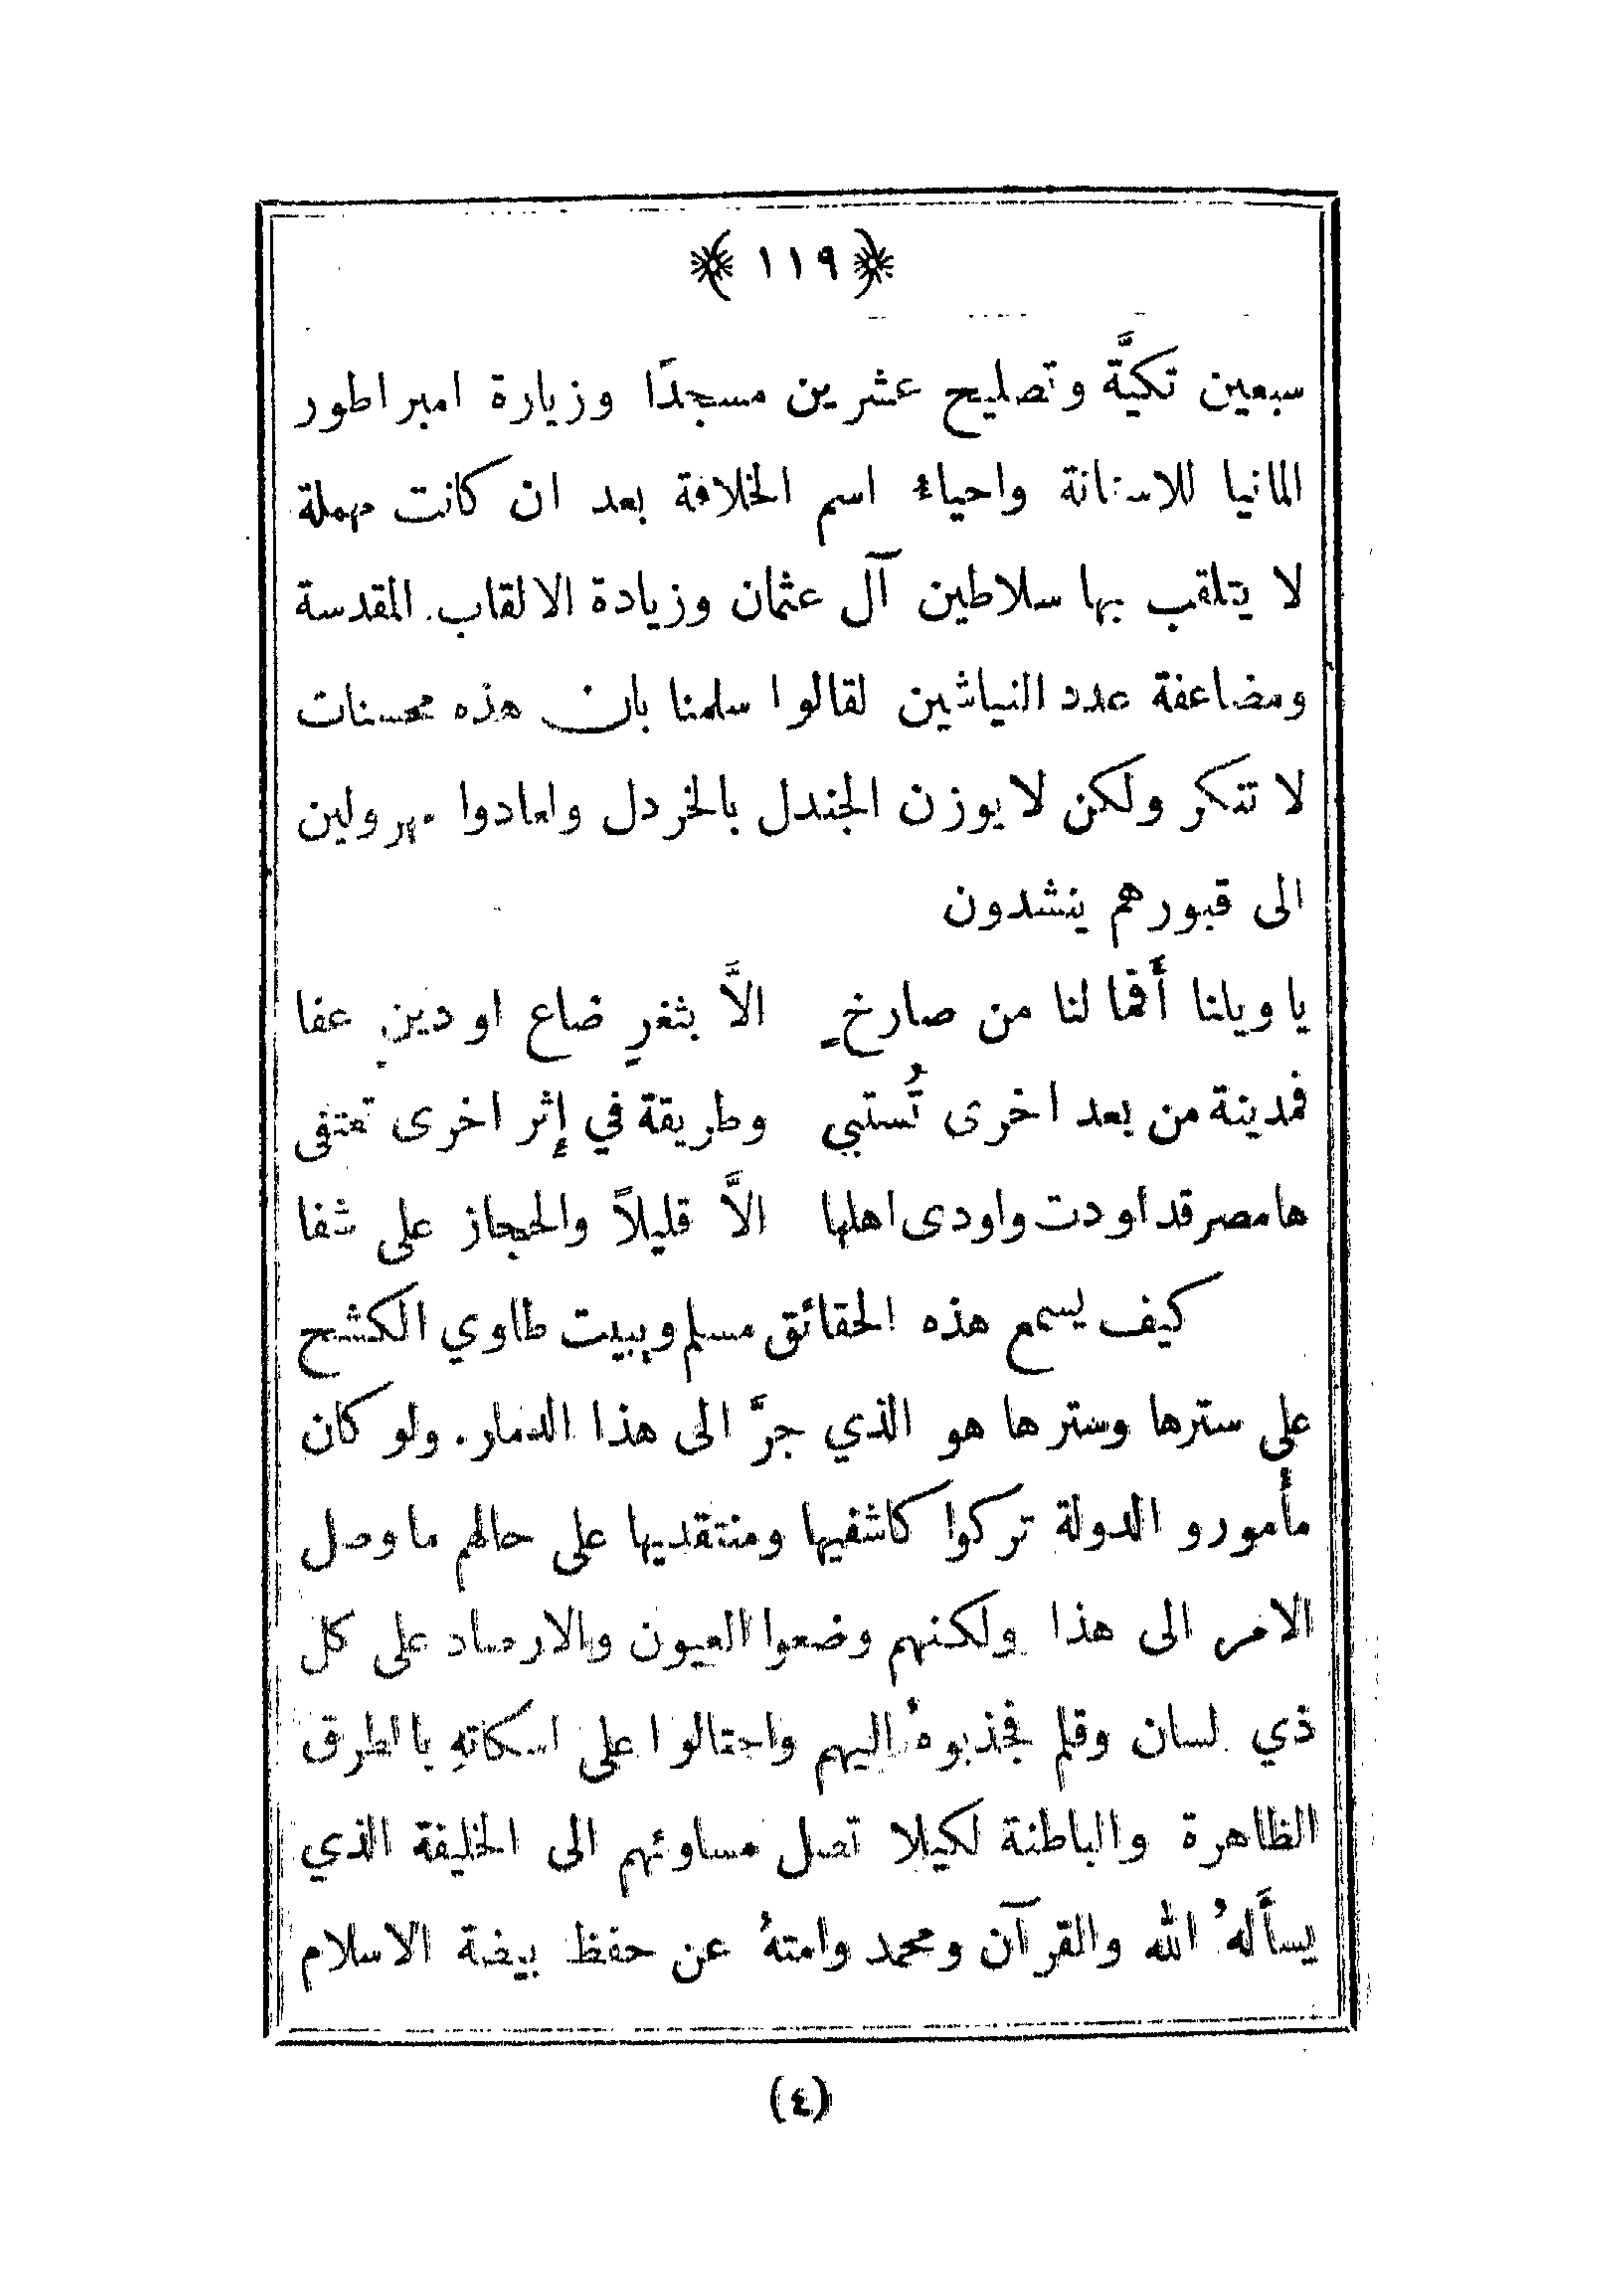 ﴿ ١١٩ ﴾
سبعين تكيَّة وتصليح عشرين مسجدًا وزيارة امبراطور
المانيا للاستانة واحياء اسم الخلافة بعد ان كانت مهملة
لا يتلقب بها سلاطين آل عثمان وزيادة الالقاب المقدسة
ومضاعفة عدد النياشين لقالوا سلمنا بان هذه محسنات
لا تنكر ولكن لا يوزن الجندل بالخردل ولعادوا مهرولين
الى قبورهم ينشدون
يا ويلنا أَفما لنا من صارخٍ الاَّ بثغرٍ ضاع او دينٍ عفا
فمدينة من بعد اخرى تُستبي وطريقة في إثر اخرى تعتفى
ها مصر قد اودت واودى اهلها الاَّ قليلاً والحجاز على شفا
كيف يسمع هذه الحقائق مسلم ويبيت طاوي الكشح
على سترها وسترها هو الذي جرَّ الى هذا الدمار. ولو كان
مأمورو الدولة تركوا كاشفيها ومنتقديها على حالهم ما وصل
الامر الى هذا ولكنهم وضعوا العيون والارصاد على كل
ذي لسان وقلم فجذبوهُ اليهم واحتالوا على اسكاتهِ بالطرق
الظاهرة والباطنة لكيلا تصل مساوئهم الى الخليفة الذي
يسأَلهُ الله والقرآن ومحمد وامتهُ عن حفظ بيضة الاسلام
(٤)